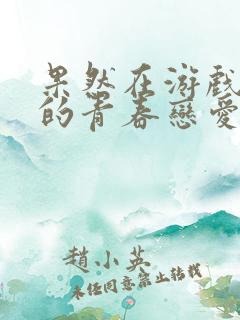 果然在游戲
的青春戀愛
趙小英
未經同意禁止轉載